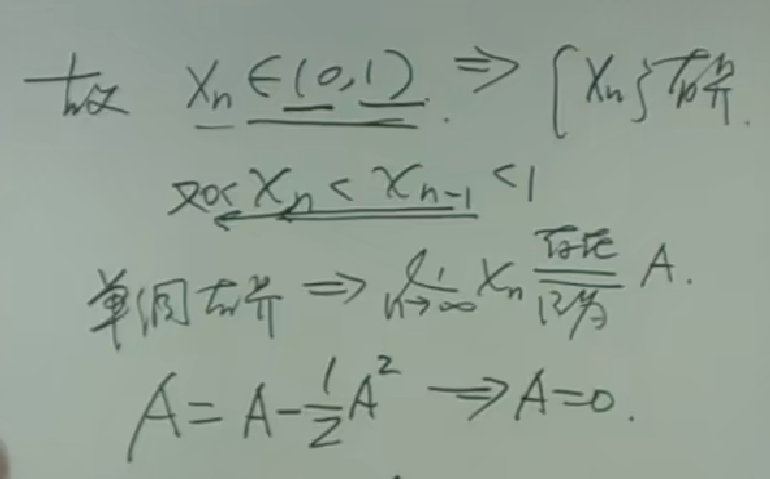 故 Xn∈(0,1). ⇒ {Xn}有界.
又0<Xn<Xn-1<1
单调有界 ⇒ lim n→∞ Xn 存在 记为 A.
A=A-1/2A² ⇒A=0.